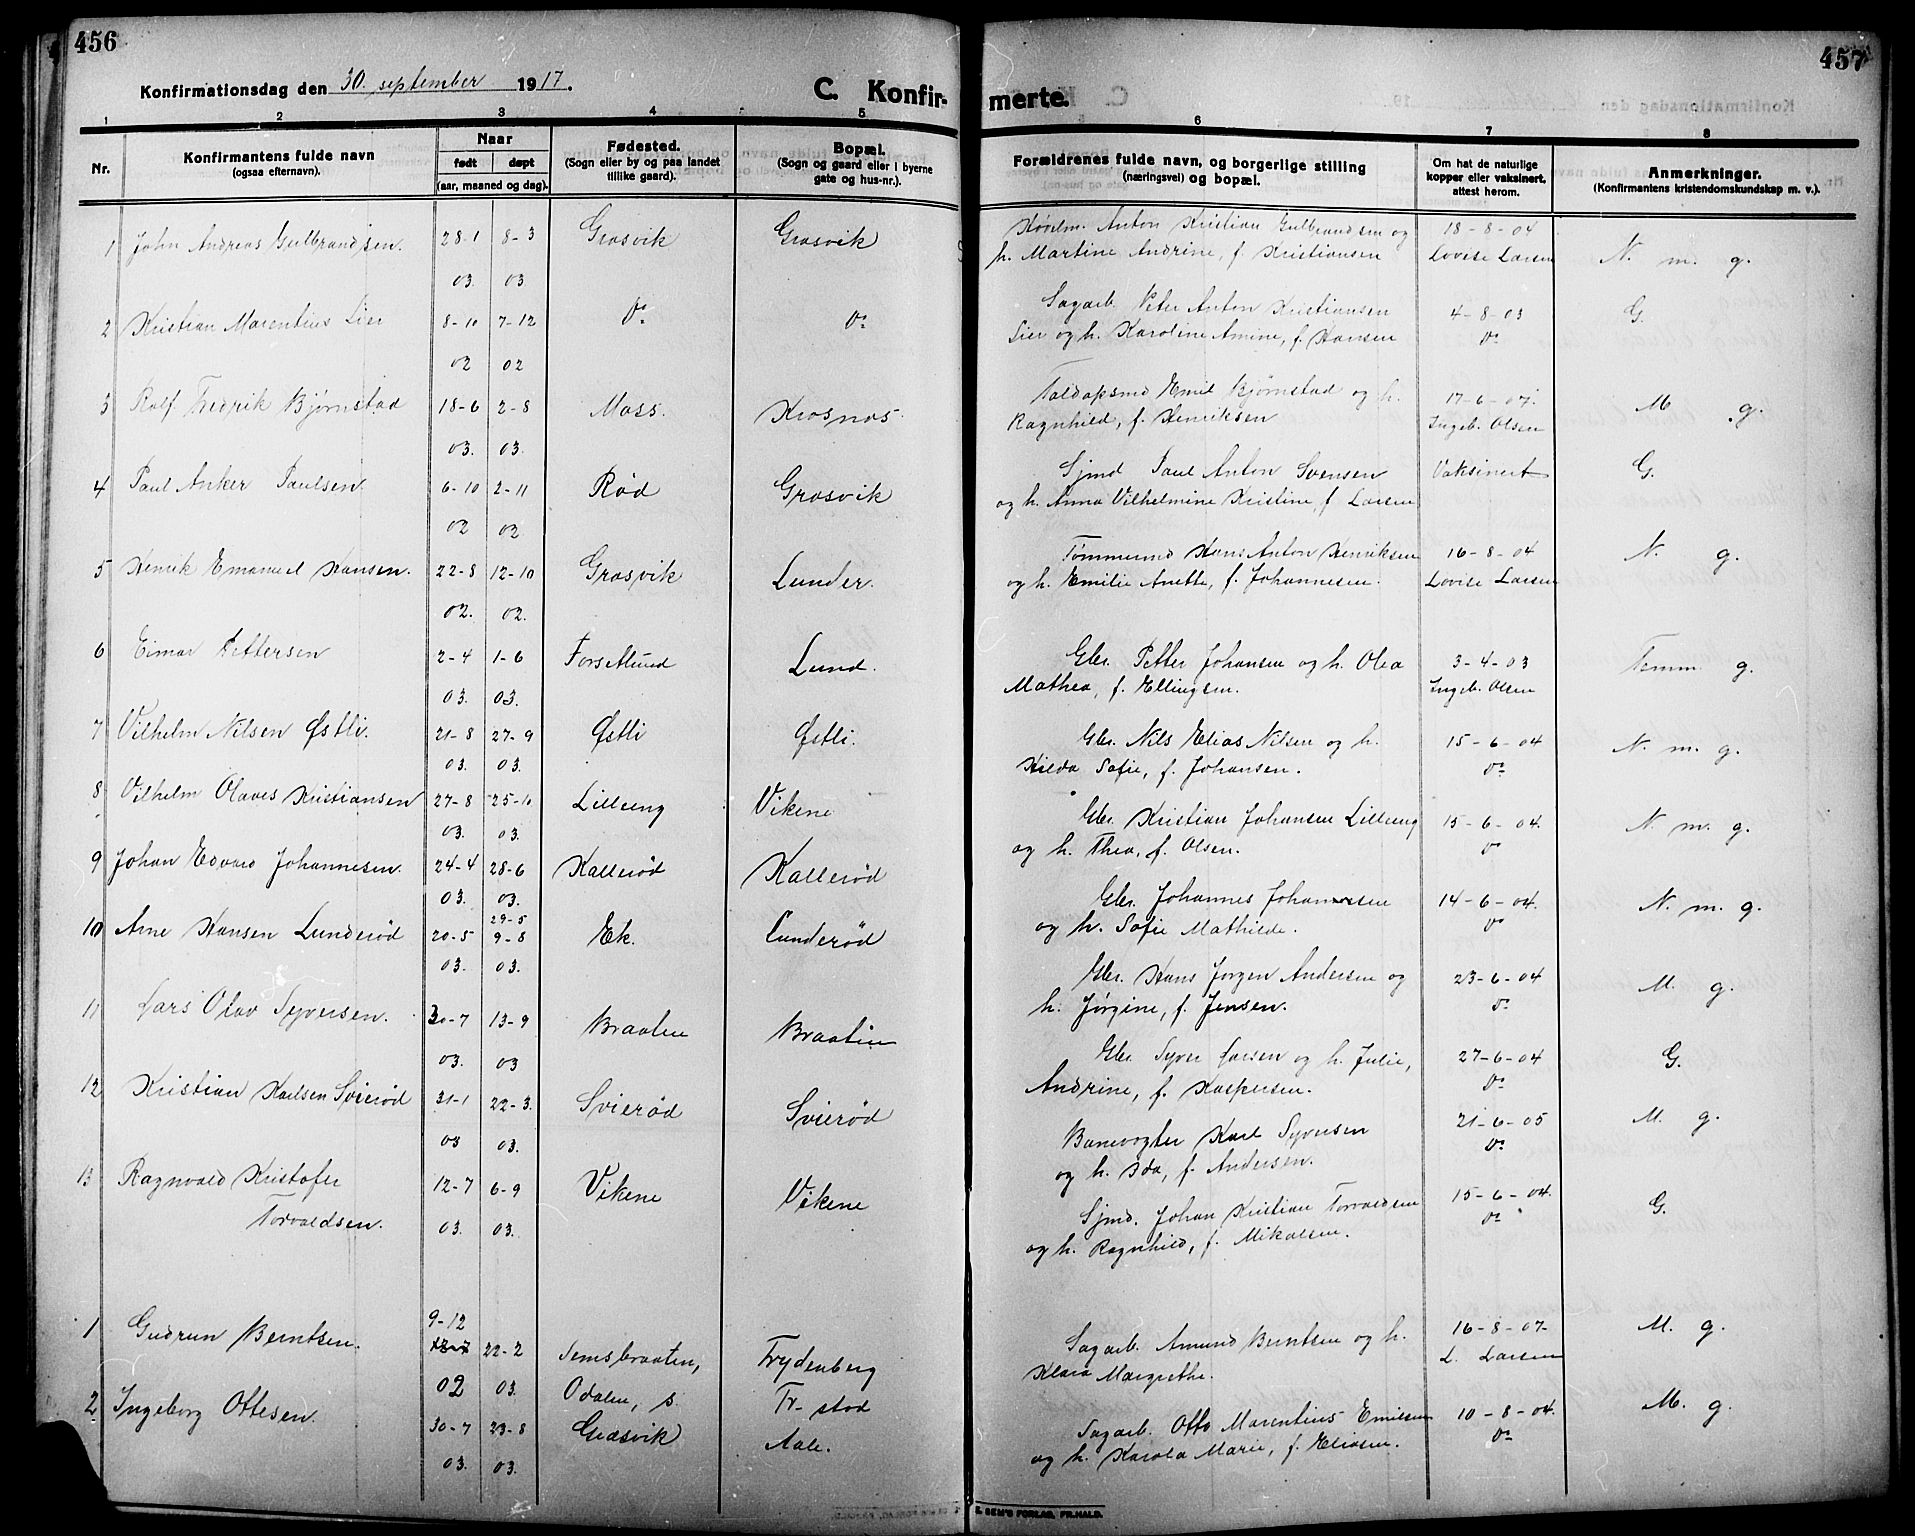 456
457
Konfirmationsdag den 30. september 1917.
C. Konfir-
merte.
1 2 3 4 5 6 7 8
Nr.
Konfirmantens fulde navn
(ogsaa efternavn).
Naar
født døpt
(aar, maaned og dag).
Fødested.
(Sogn eller by og paa landet
tillike gaard).
Bopæl.
(Sogn og gaard eller i byerne
gate og hus-nr.).
Forældrenes fulde navn, og borgerlige stilling
(næringsvei) og bopæl.
Om hat de naturlige
kopper eller vaksinert,
attest herom.
Anmerkninger.
(Konfirmantens kristendomskundskap m. v.).
1 John Andreas Gulbrandsen. 28-1 8-3 Græsvik Græsvik Anton Kristian Gulbrandsen og 18-8-04
h. Martine Andrine, f. Kristiansen Lovise Larsen N. m. g.
03. 03
2 Kristian Marentius Lier 8-10 7-12 Do Do Sagarb. Peter Anton Kristiansen 4-8-03 G.
Lier og h. Karoline Amine, f. Hansen Do
02 02
3 Rolf Fredrik Bjørnstad 18-6 2-8 Moss. Krosnes. Toldopsmd Emil Bjørnstad og h. 17-6-07. M g.
Ragnhild, f. Henriksen Ingeb. Olsen
03. 03.
4 Paul Anker Paulsen 6-10 2-11 Rød Græsvik Sjmd Paul Anton Svensen Vaksinert G.
og h. Anna Vilhelmine Kristine, f Larsen
02 02
5 Henrik Emanuel Hansen. 22-8 12-10 Græsvik Lunder. Tømmermd Hans Anton Henriksen 16-8-04 N. g.
og h. Emilie Anette, f. Johannesen. Lovise Larsen
02. 02.
6 Einar Pettersen 2-4 1-6 Forsetlund Lund. Gbr. Petter Johansen og h. Olea 3-4-03 Temm. g.
Mathea, f. Ellingsen. Ingeb. Olsen
03. 03.
7 Vilhelm Nilsen Østli. 21-8 27-9 Østli Østli. Gbr. Nils Elias Nilsen og h. 15-6-04 N. m. g.
Hilda Sofie, f. Johansen. Do
03. 03.
8 Vilhelm Olaves Kristiansen 27-8 25-10 Lilleeng Vikene Gbr. Kristian Johansen Lilleeng 15-6-04. N. m. g.
og h. Thea, f. Olsen. Do
03. 03.
9 Johan Edvard Johannesen. 24-4 28-6 Kallerød Kallerød Gbr. Johannes Johannesen 14-6-04. N. m. g.
og h. Sofie Mathilde. Do
03. 03.
29-5
10 Arne Hansen Lunderød 20-5 9-8 Ek. Lunderød Gbr. Hans Jørgen Andersen og 23-6-04 M. g.
h. Jørgine, f. Jensen. Do
03. 03.
11 Lars Olav Syversen. 30-7 13-9 Braaten Braaten Gbr. Syver Larsen og h. Julie, 27-6-04 G.
Andrine, f. Kaspersen. Do
03. 03
12 Kristian Karlsen Svierød 31-1 22-3. Svierød Svierød Banevogter Karl Syversen 21-6-05 M. g.
og h. Ida, f. Andersen. Do
03 03.
13 Ragnvald Kristofer 12-7 6-9 Vikene Vikene Sjmd. Johan Kristian Torvaldsen 15-6-04. G.
Torvaldsen. og h. Ragnhild, f. Mikalsen. Do
03. 03.
9-12
1 Gudrun Berntsen. 22-2 Semsbraaten, Frydenberg Sagarb. Amund Berntsen og h. 16-8-07- M. g.
Klara Margrethe. L. Larsen
02 03. Odalen, s. Fr-stad
2 Ingeborg Ottesen. 30-7 23-8 Græsvik Aale. Sagarb. Otto Marentius Emilsen 10-8-04. M. g.
og h. Karola Marie, f. Eliasen. Do
03. 03.
SEM'S FORLAG, FR.HALD.